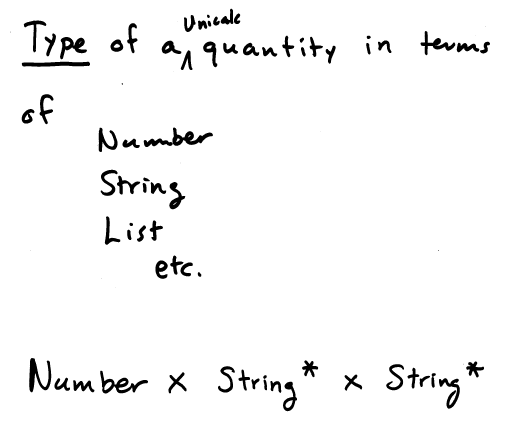 Type of a Unicalc quantity in terms
of
Number
String
List
etc.
Number x String* x String*